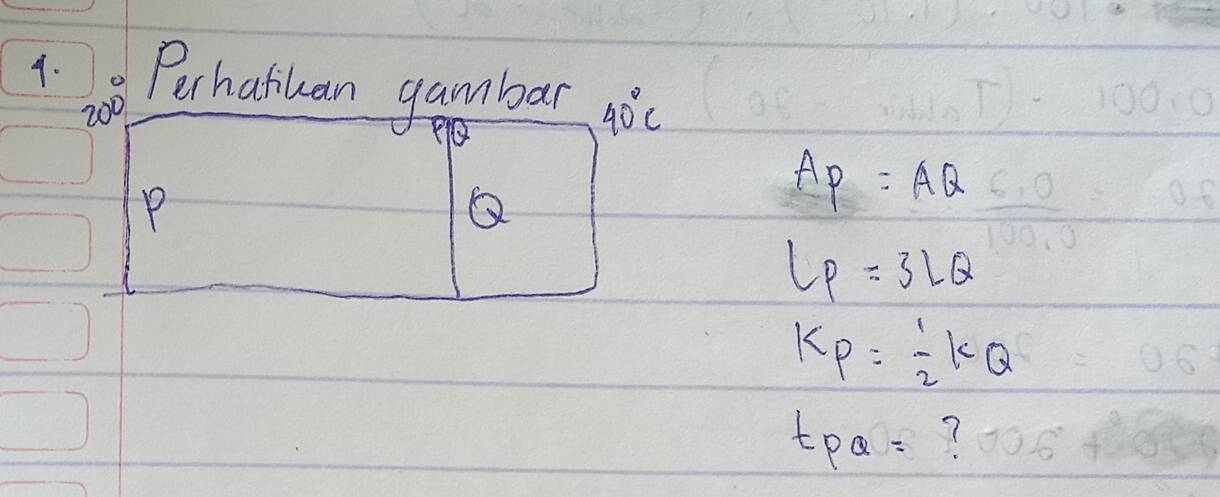 1. Perhatikan gambar
200° 40°C
PQ
P Q
Ap = AQ
Lp = 3LQ
Kp = 1/2 kQ
tpQ = ?